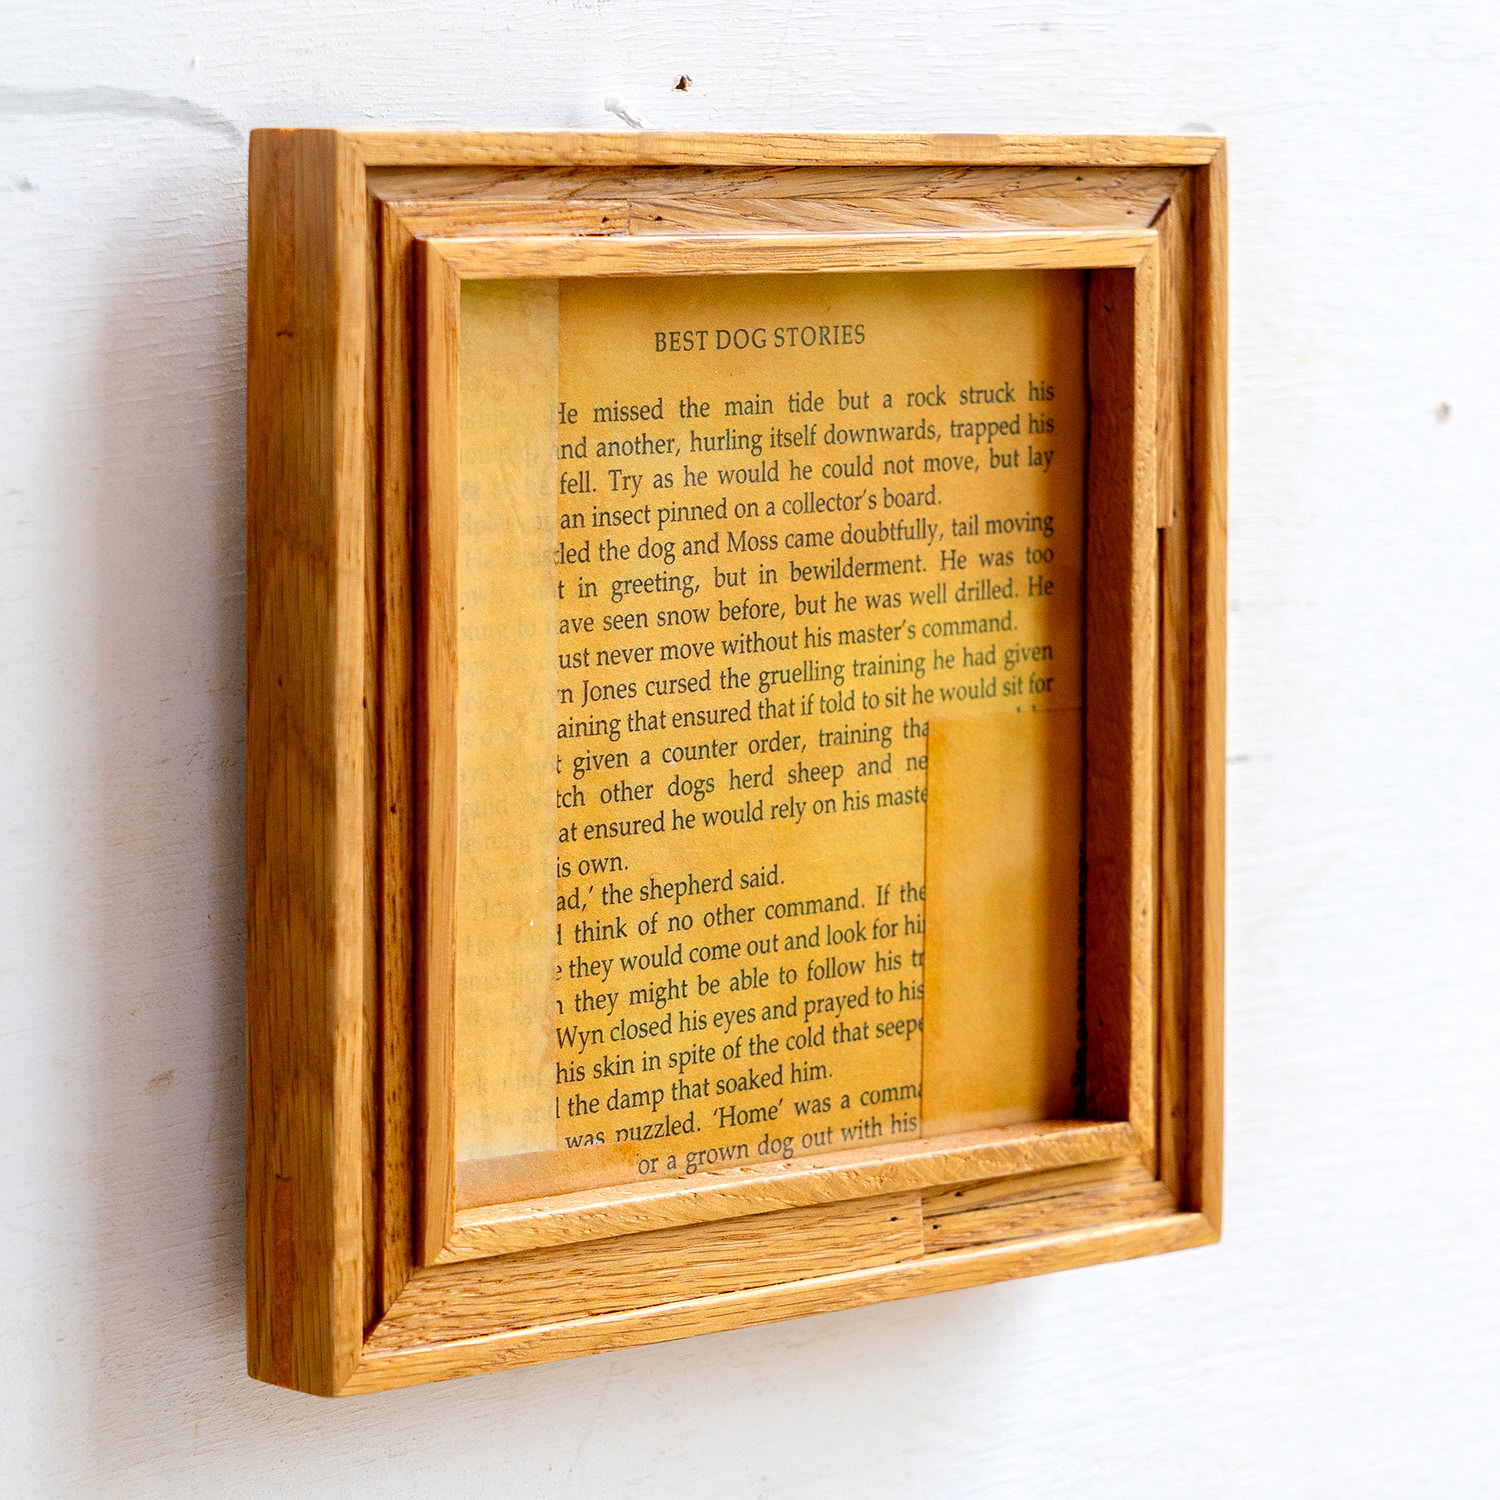 BEST DOG STORIES
He missed the main tide but a rock struck his
and another, hurling itself downwards, trapped his
fell. Try as he would he could not move, but lay
an insect pinned on a collector's board.
led the dog and Moss came doubtfully, tail moving
t in greeting, but in bewilderment. He was too
ave seen snow before, but he was well drilled. He
ust never move without his master's command.
n Jones cursed the gruelling training he had given
aining that ensured that if told to sit he would sit for
t given a counter order, training tha
tch other dogs herd sheep and ne
at ensured he would rely on his maste
is own.
ad,' the shepherd said.
d think of no other command. If the
e they would come out and look for hi
n they might be able to follow his tr
Wyn closed his eyes and prayed to his
his skin in spite of the cold that seepe
l the damp that soaked him.
was puzzled. 'Home' was a comma
or a grown dog out with his